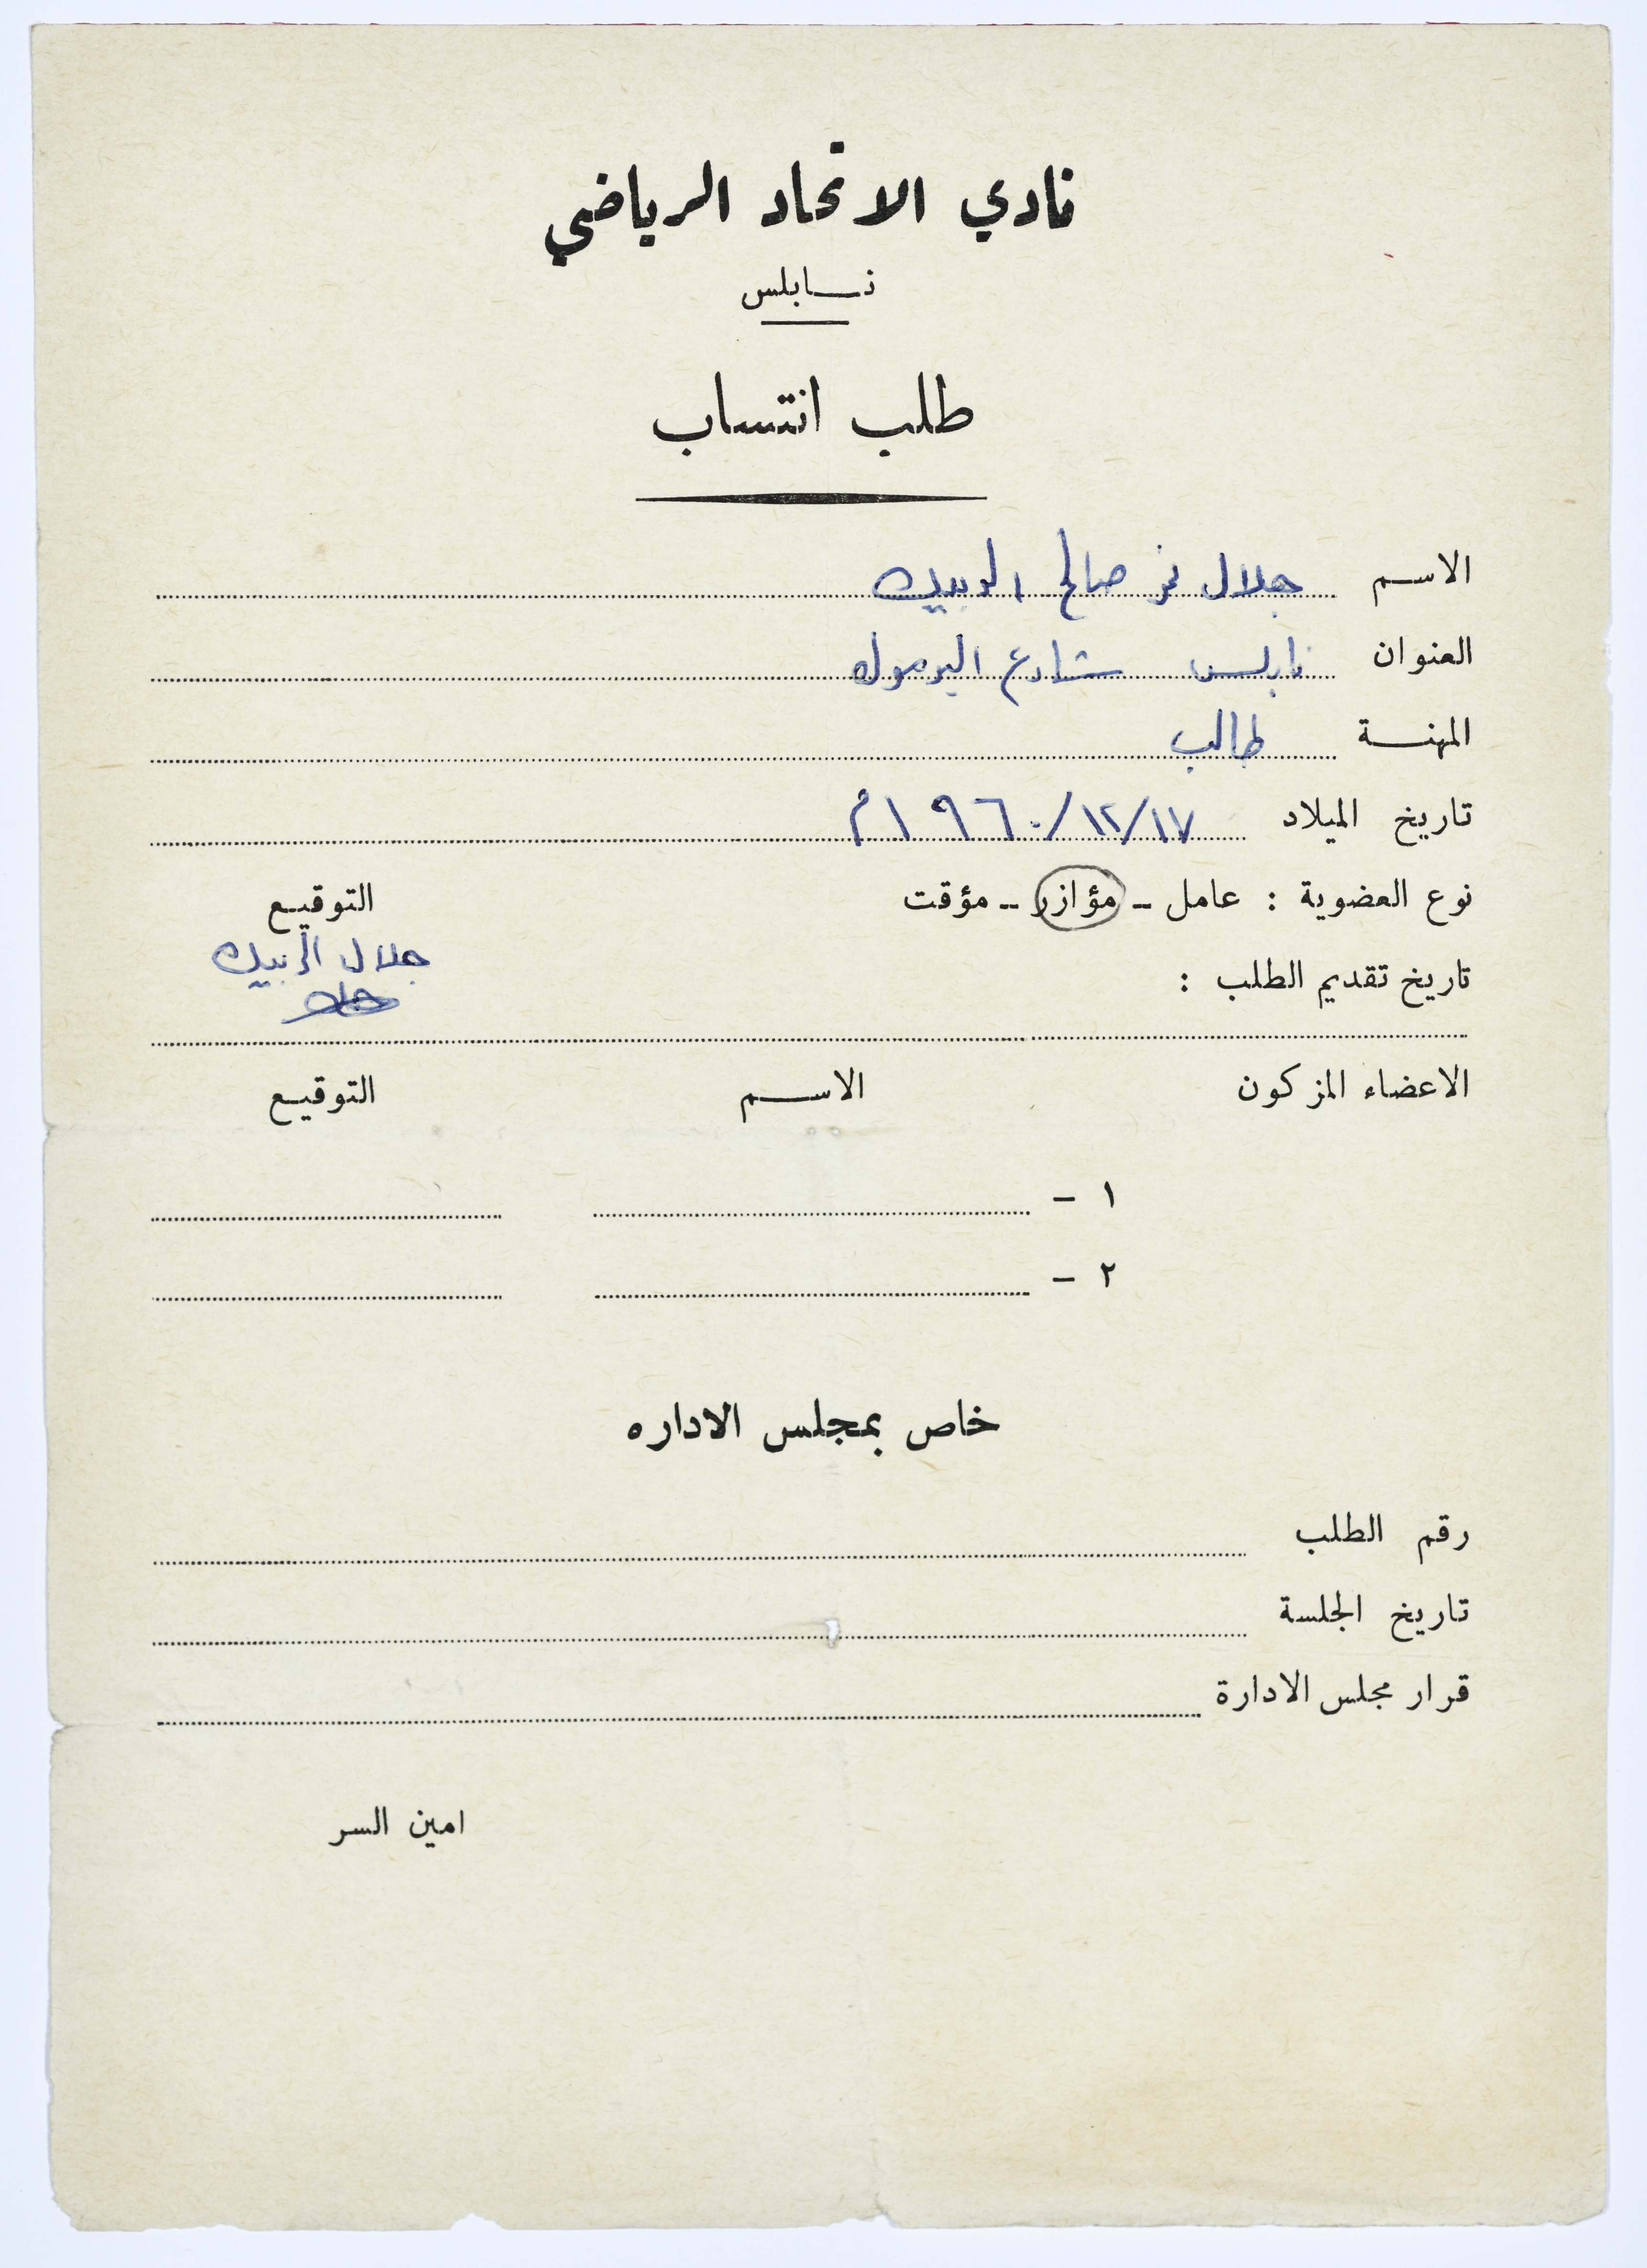 نادي الاتحاد الرياضي
نابلس
طلب انتساب
الاسم جلال نمر صالح
العنوان نابلس شارع اليرموك
المهنة طالب
تاريخ الميلاد ١٧/١٢/١٩٦٠م
نوع العضوية : عامل - مؤازر - مؤقت التوقيع
جلال
تاريخ تقديم الطلب :
الاعضاء المزكون الاسم التوقيع
١ -
٢ -
خاص بمجلس الاداره
رقم الطلب
تاريخ الجلسة
قرار مجلس الادارة
امين السر